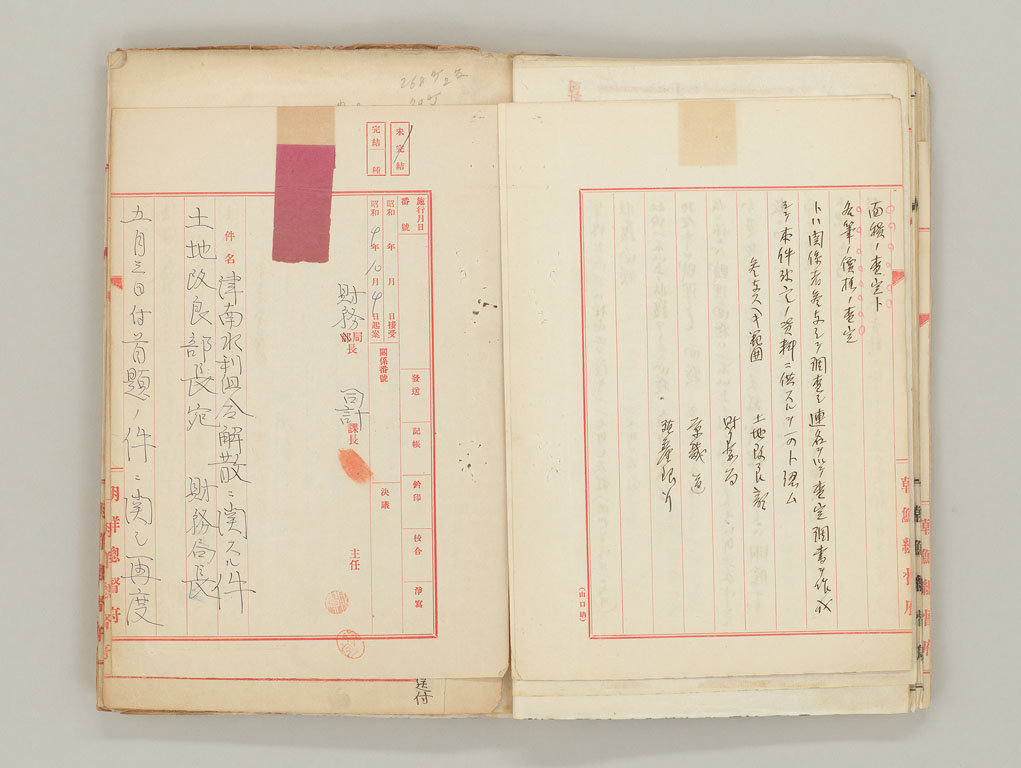 面積ノ査定ト
各筆ノ價格ノ査定
トハ関係者参与シテ調査シ連名ヲ以テ査定調書ヲ作成
シテ本件決定ノ資料ニ供スルヲ可ト認ム
参与スヘキ範囲
土地改良部
財務局
京畿道
殖産銀行
朝鮮總督府
(山口納)
未完結
完結
施行月日
番號
昭和 年 月 日接受
昭和9年10月9日起案
關係番號
發送
記帳
鈐印
校合
淨寫
財務局長
司計課長
決議
主任
件名
津南水利組合解散ニ関スル件
土地改良部長宛 財務局長
五月三日付首題ノ件ニ関シ再度
朝鮮總督府
送付